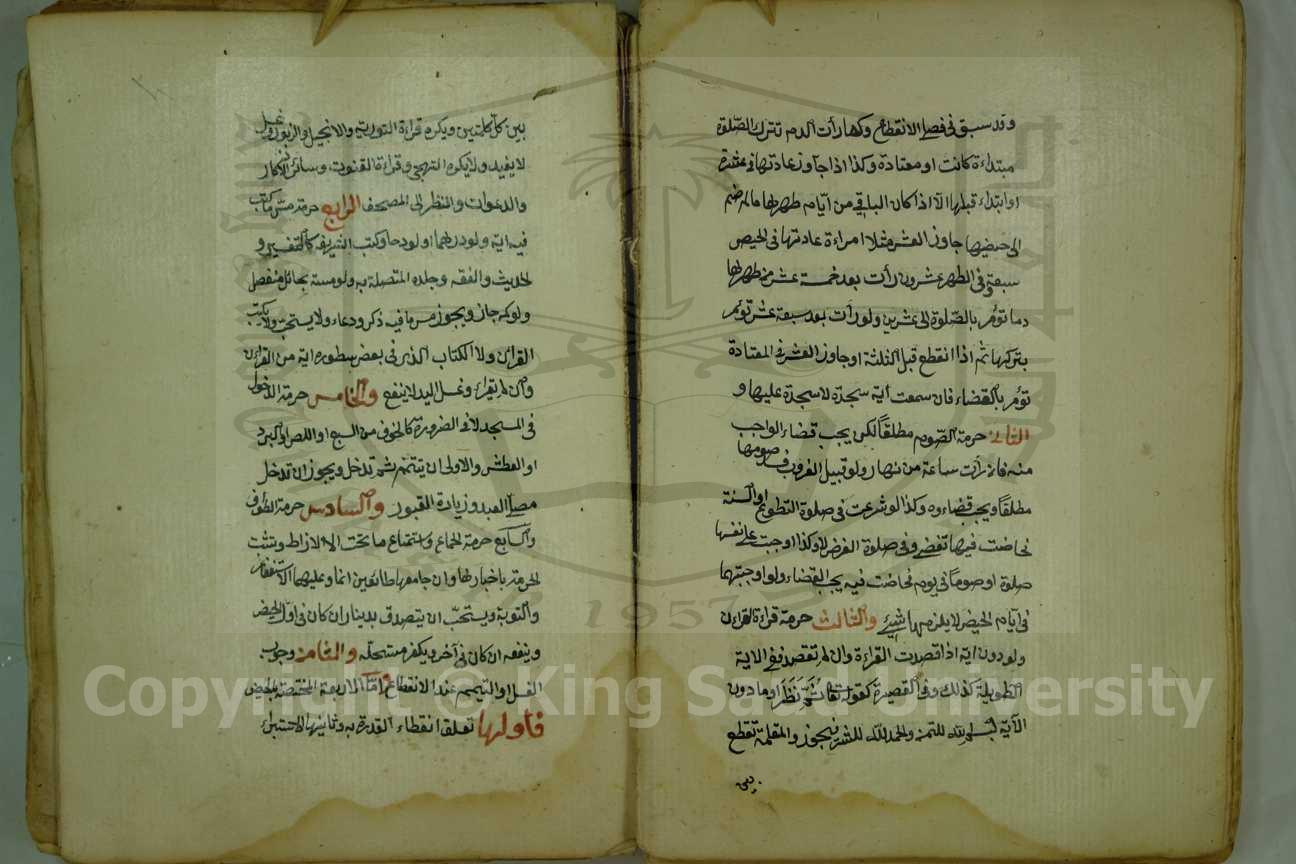 وقد سبق في فصل الانقطاع وكما رأت الدم تترك الصلوة
مبتدأة كانت او معتادة وكذا اذا جاوز عادتها في عشرة
او ابتداء قبلها الا اذا كان الباقي من أيام طهرها ما لو ضم
الى حيضها جاوز العشر مثلا امراءة عادتها في الحيض
سبعة وفي الطهر عشرون رأت بعد خمسة عشر من طهرها
دما تؤمر بالصلوة الى عشرين ولو رأت بعد سبعة عشر تؤمر
بتركها ثم اذا انقطع قبل الثلثة او جاوز العشر في المعتادة
تؤمر بالقضاء فان سمعت آية سجدة لا سجدة عليها و
الثاني حرمة الصوم مطلقاً لكن يجب قضاء الواجب
منه فان رأت ساعة من نهار ولو قبيل الغروب فسد صومها
مطلقاً ويجب قضاءوه وكذا لو شرعت في صلوة التطوع او السنة
فحاضت فيها تقضي وفي صلوة الفرض لا وكذا اوجبت على نفسها
صلوة او صوماً في يوم فحاضت فيه يجب القضاء ولو اوجبتها
في أيام الحيض لا يلزمها شيئ والثالث حرمة قراءة القراءن
ولو دون اية اذا قصدت القراءة وان لم تقصد ففي الاية
الطويلة كذلك وفي القصيرة كقوله تعالى ثُمَّ نَظَرَ او ما دون
الآية كبسم الله للتيمن والحمد لله للشكر فيجوز والمعلمة تقطع
بين
بين كل كلمتين ويكره قراءة التورية والانجيل والزبور وغسل
لا يفيد ولا يكره التهجي وقراءة القنوت وسائر الاذكار
والدعوات والنظر الى المصحف الرابع حرمة مس ما كتب
فيه اية ولو درهما او لوحا وكتب الشريعة كالتفسير و
الحديث والفقه وجلده المتصلة به ولو مسته بحائل منفصل
ولو كمه جاز ويجوز مس ما فيه ذكر ودعاء ولا يستحب ولا يكتب
القراءن ولا الكتاب الذي في بعض سطوره اية من القراءن
وان لم يقراء وغسل اليد لا ينفع والخامس حرمة الدخول
في المسجد لا في الضرورة كالخوف من السبع او اللص او البرد
او العطش والاولى ان يتيمم ثم تدخل ويجوز ان تدخل
مصلى العيد وزيارة القبور والسادس حرمة الطواف
والسابع حرمة الجماع واستمتاع ما تحت الازار وتثبت
الحرمة باخبارها وان جامعها طائعين اثما وعليهما الاستغفار
والتوبة ويستحب ان يتصدق بدينار ان كان في اول الحيض
وبنصفه ان كان في آخره ويكفر مستحله والثامن وجوب
الغسل او التيمم عند الانقطاع واما الاربعة المختصة بالحيض
فاولها تعلق انقضاء العدة به وثانيها الاستبراء
Copyright © King Saud University
1957